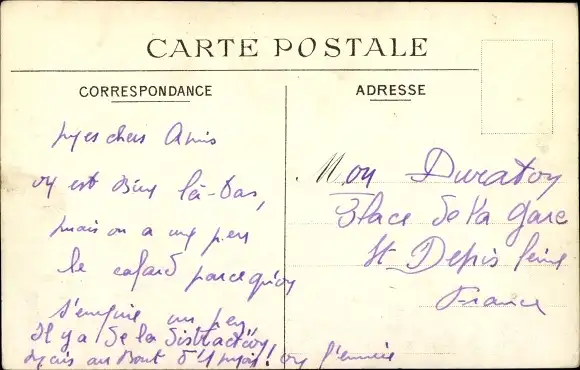 CARTE POSTALE
CORRESPONDANCE
ADRESSE
Mes chers Amis
on est Bien là-bas,
mais on a un peu
le cafard parce qu'on
s'ennuie un peu
Il y a de la distraction,
Mais au Bout d'1 mois! on s'ennuie
Mon Duratoy
Place de la Gare
St Denis Seine
France